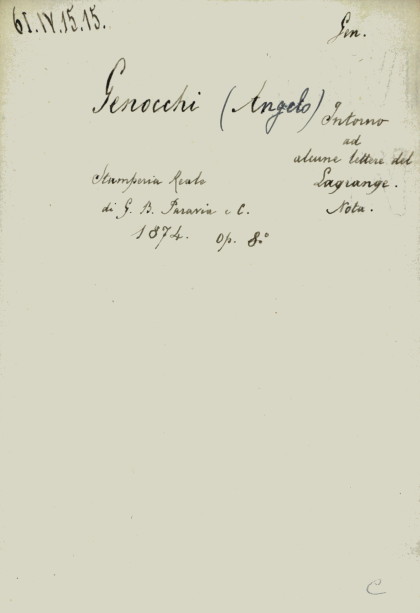 61.IV.15.15.
Gen.
Genocchi (Angelo)
Intorno
ad
alcune lettere del
Lagrange.
Nota.
Stamperia Reale
di G. B. Paravia e C.
1874. Op. 8.º
C